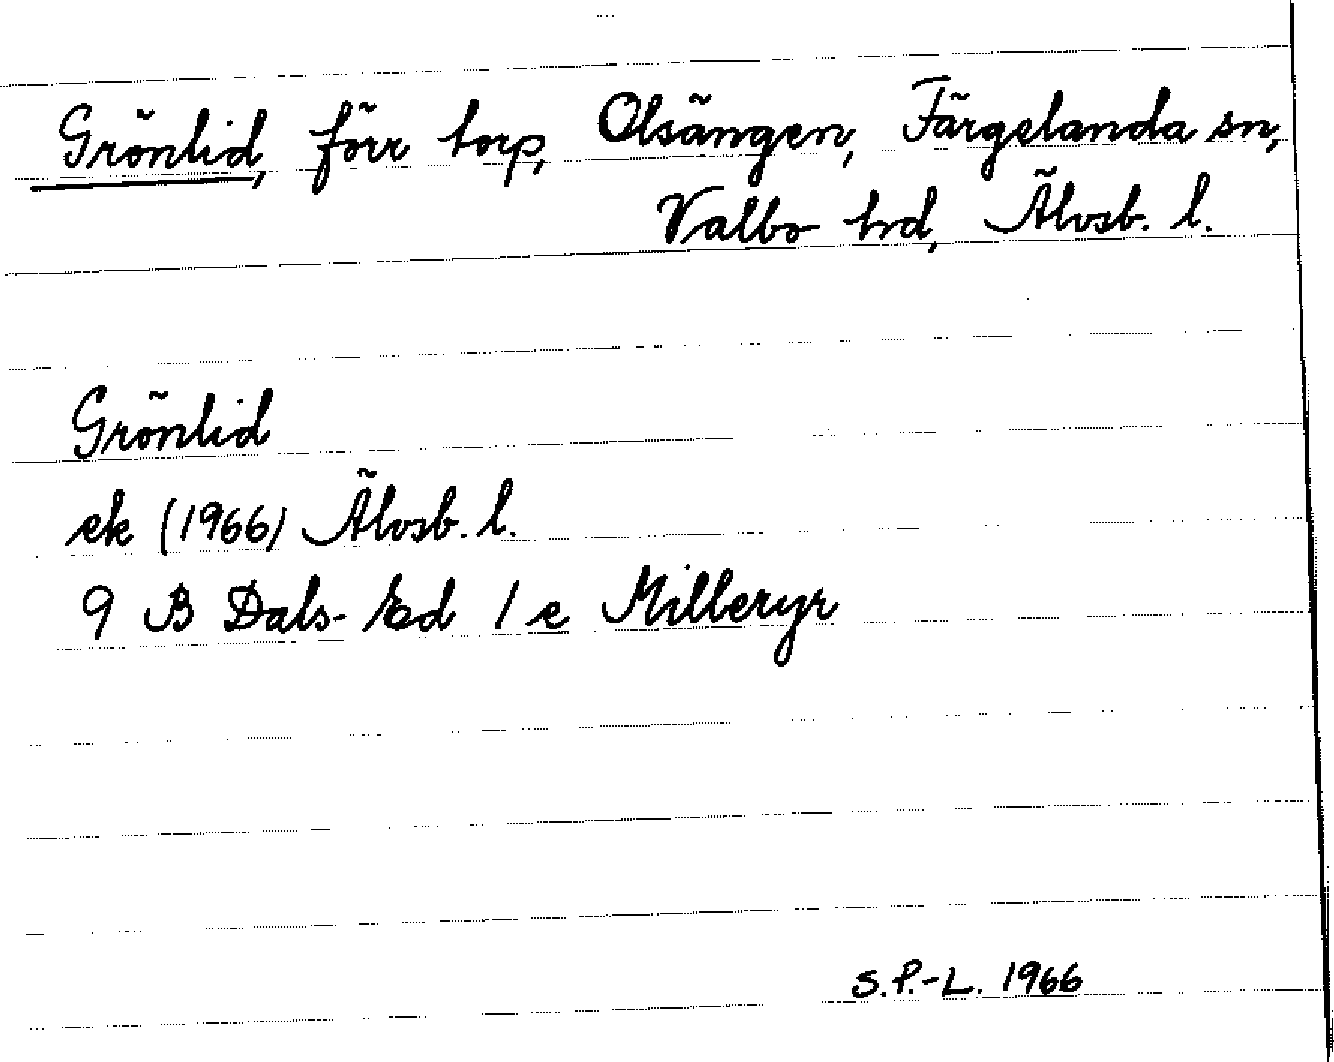 Grönlid, förr torp, Olsängen, Färgelanda sn,
Valbo hd, Älvsb. l.
Grönlid
ek (1966) Älvsb. l.
9 B Dals-Ed 1 e Milleryr
S.P.-L. 1966